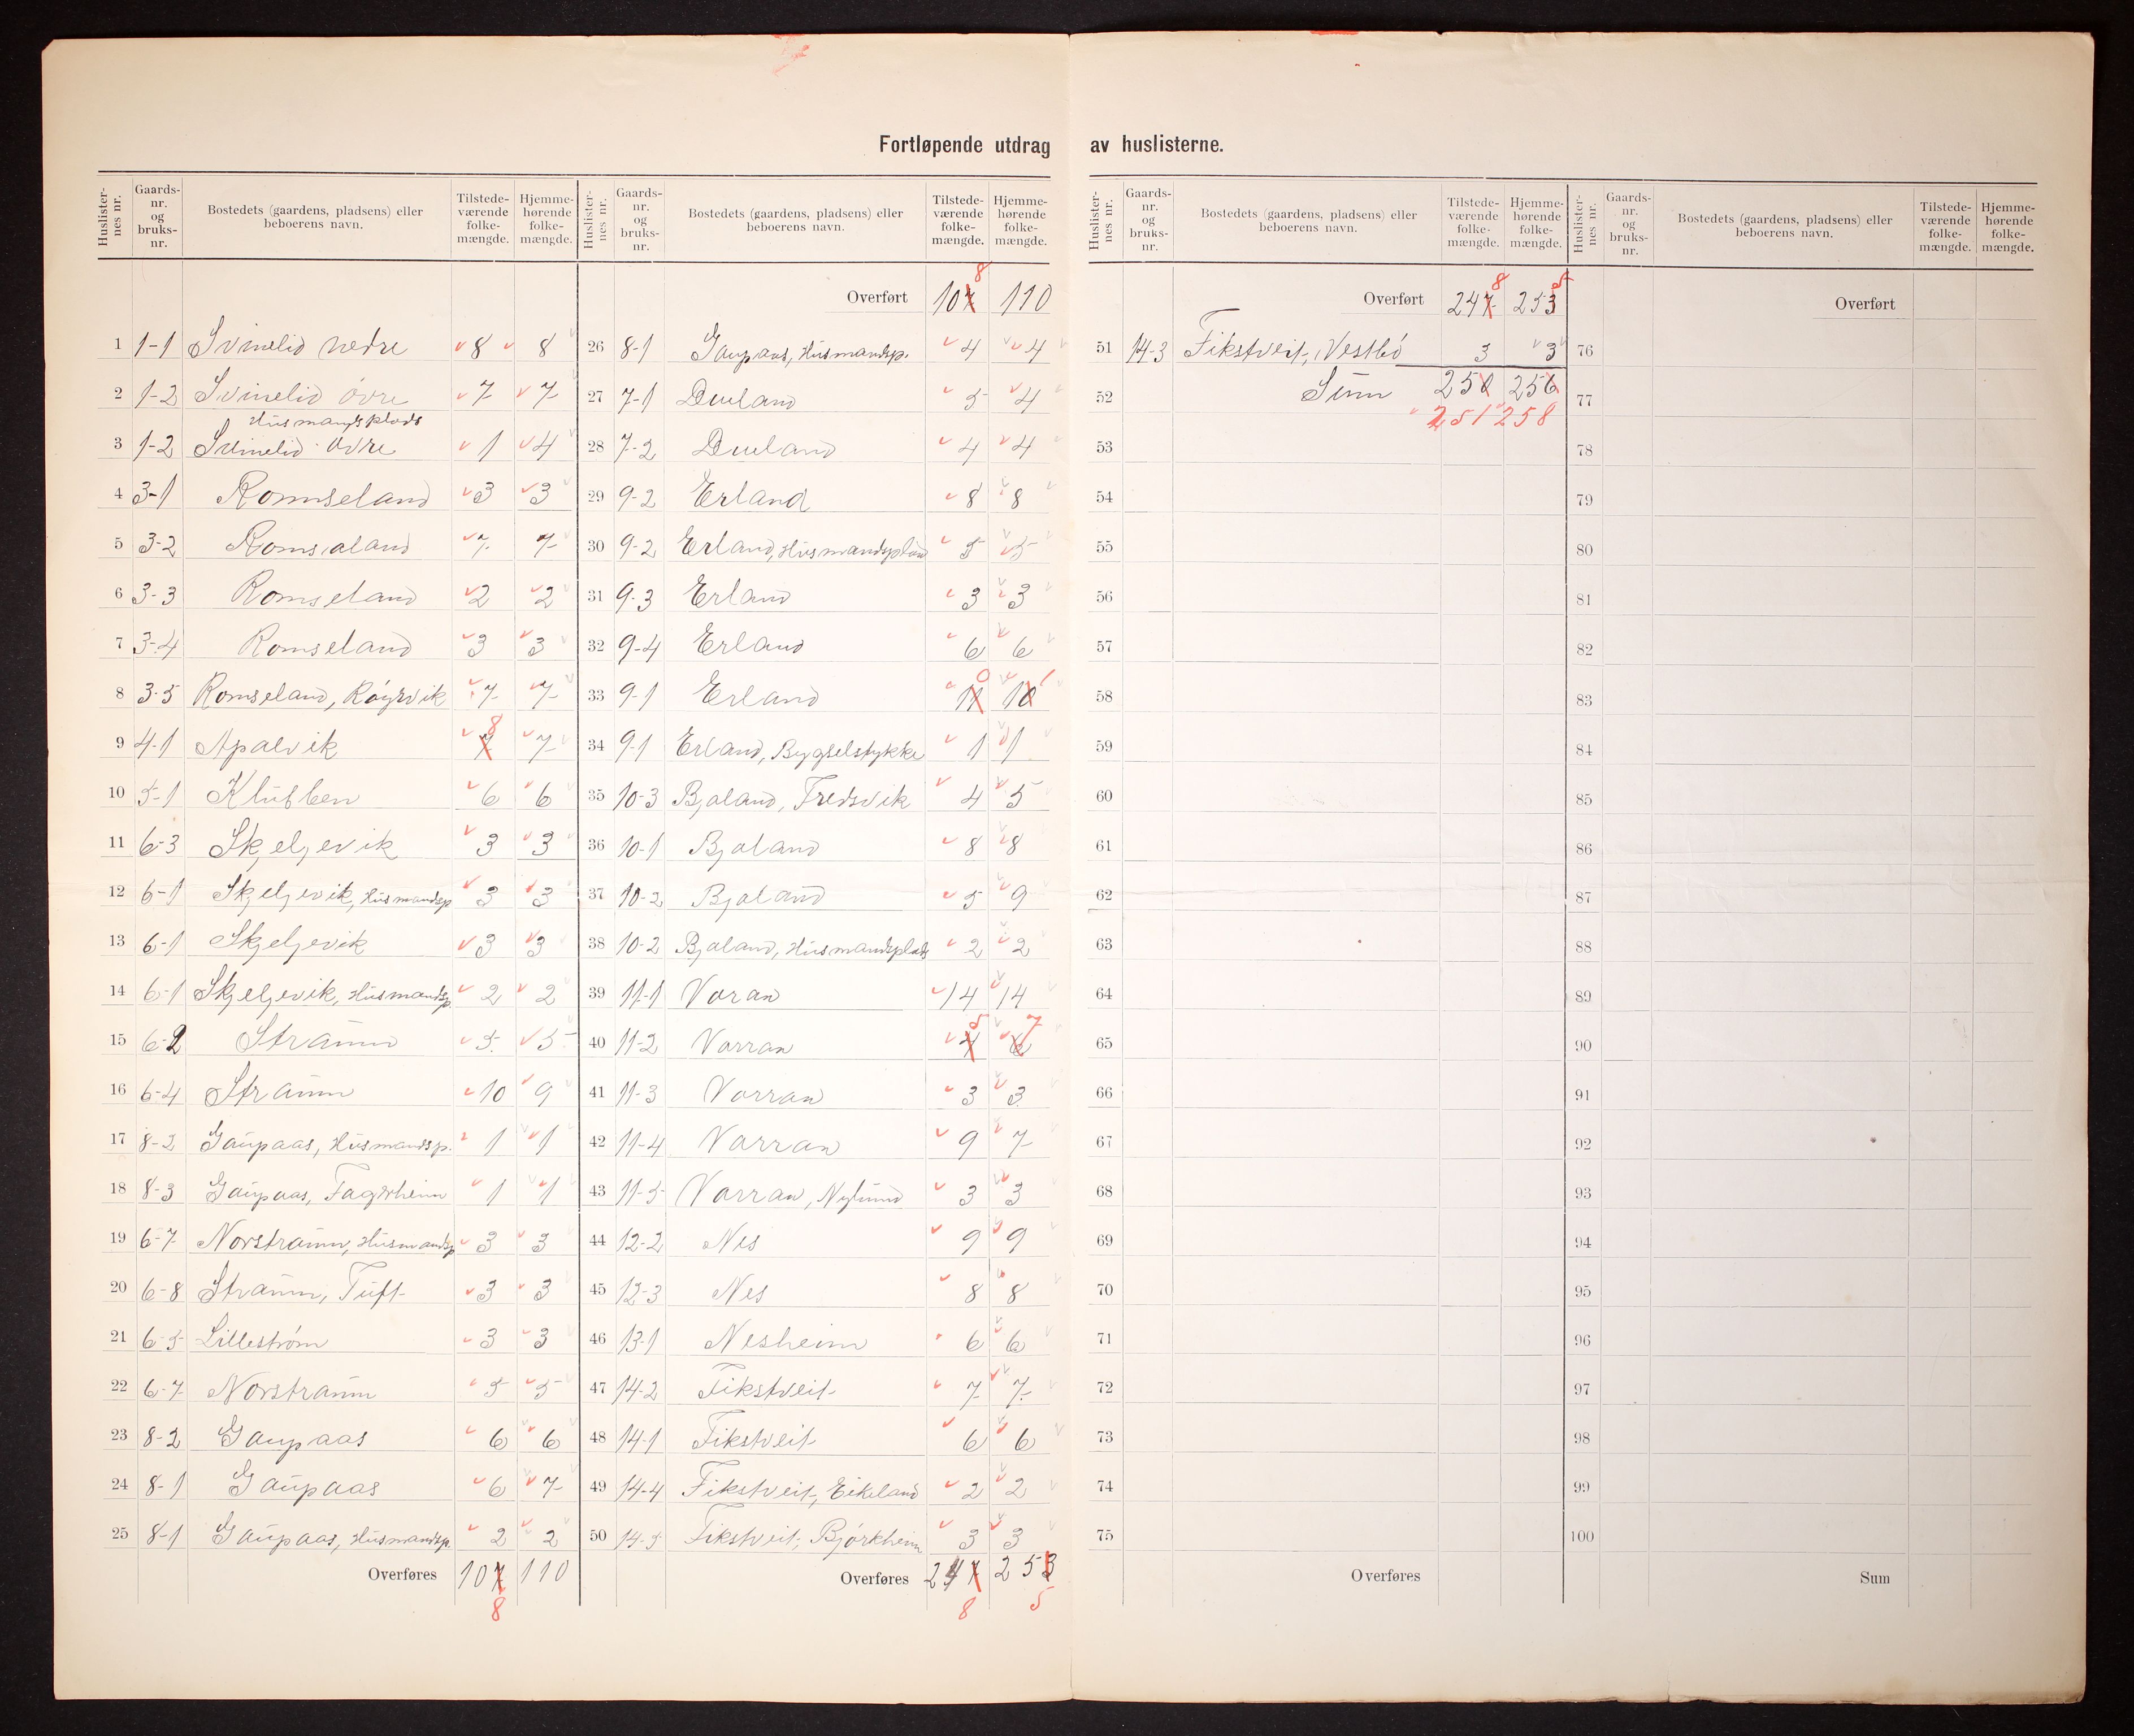 Fortløpende utdrag av huslisterne.
Huslisternes nr. Gaards-nr. og bruks-nr. Bostedets (gaardens, pladsens) eller beboerens navn. Tilstede-værende folke-mængde. Hjemme-hørende folke-mængde.
1 1-1 Svinelid nedre 8 8
2 1-2 Svinelid övre 7 7
Husmandsplads
3 1-2 Svinelid övre 1 4
4 3-1 Romseland 3 3
5 3-2 Romsaland 7 7
6 3-3 Romseland 2 2
7 3-4 Romseland 3 3
8 3-5 Romseland, Röyrvik 7 7
9 4-1 Apalvik 7 8 7
10 5-1 Klubben 6 6
11 6-3 Skjeljevik 3 3
12 6-1 Skjeljevik, Husmandsp 3 3
13 6-1 Skjeljevik 3 3
14 6-1 Skjeljevik, Husmandsp. 2 2
15 6-2 Straum 5 5
16 6-4 Straum 10 9
17 8-2 Gaupaas, Husmandsp. 1 1
18 8-3 Gaupaas, Fagerheim 1 1
19 6-7 Norstraum, Husmandsp 3 3
20 6-8 Straum, Tuft 3 3
21 6-5 Lilleström 3 3
22 6-7 Norstraum 5 5
23 8-2 Gaupaas 6 6
24 8-1 Gaupaas 6 7
25 8-1 Gaupaas, Husmandsp. 2 2
Overføres 107 8 110
Huslisternes nr. Gaards-nr. og bruks-nr. Bostedets (gaardens, pladsens) eller beboerens navn. Tilstede-værende folke-mængde. Hjemme-hørende folke-mængde.
Overført 107 8 110
26 8-1 Gaupaas, Husmandsp. 4 4
27 7-1 Dueland 5 4
28 7-2 Dueland 4 4
29 9-2 Erland 8 8
30 9-2 Erland, Husmandsplad 5 5
31 9-3 Erland 3 3
32 9-4 Erland 6 6
33 9-1 Erland 11 0 10 1
34 9-1 Erland, Bygselstykke 1 1
35 10-3 Bjaland, Fredsvik 4 5
36 10-1 Bjaland 8 8
37 10-2 Bjaland 5 9
38 10-2 Bjaland, Husmandsplads 2 2
39 11-1 Voran 14 14
40 11-2 Varran 4 5 6 7
41 11-3 Varran 3 3
42 11-4 Varran 9 7
43 11-5 Varran, Nylund 3 3
44 12-2 Nes 9 9
45 12-3 Nes 8 8
46 13-1 Nesheim 6 6
47 14-2 Fikstveit 7 7
48 14-1 Fikstveit 6 6
49 14-4 Fikstveit, Eikeland 2 2
50 14-5 Fikstveit, Björkheim 3 3
Overføres 247 8 253 5
Huslisternes nr. Gaards-nr. og bruks-nr. Bostedets (gaardens, pladsens) eller beboerens navn. Tilstede-værende folke-mængde. Hjemme-hørende folke-mængde.
Overført 247 8 253 5
51 14-3 Fikstveit, Vestbö 3 3
52 Sum 250 256
251 258
53
54
55
56
57
58
59
60
61
62
63
64
65
66
67
68
69
70
71
72
73
74
75
Overføres
Huslisternes nr. Gaards-nr. og bruks-nr. Bostedets (gaardens, pladsens) eller beboerens navn. Tilstede-værende folke-mængde. Hjemme-hørende folke-mængde.
Overført
76
77
78
79
80
81
82
83
84
85
86
87
88
89
90
91
92
93
94
95
96
97
98
99
100
Sum